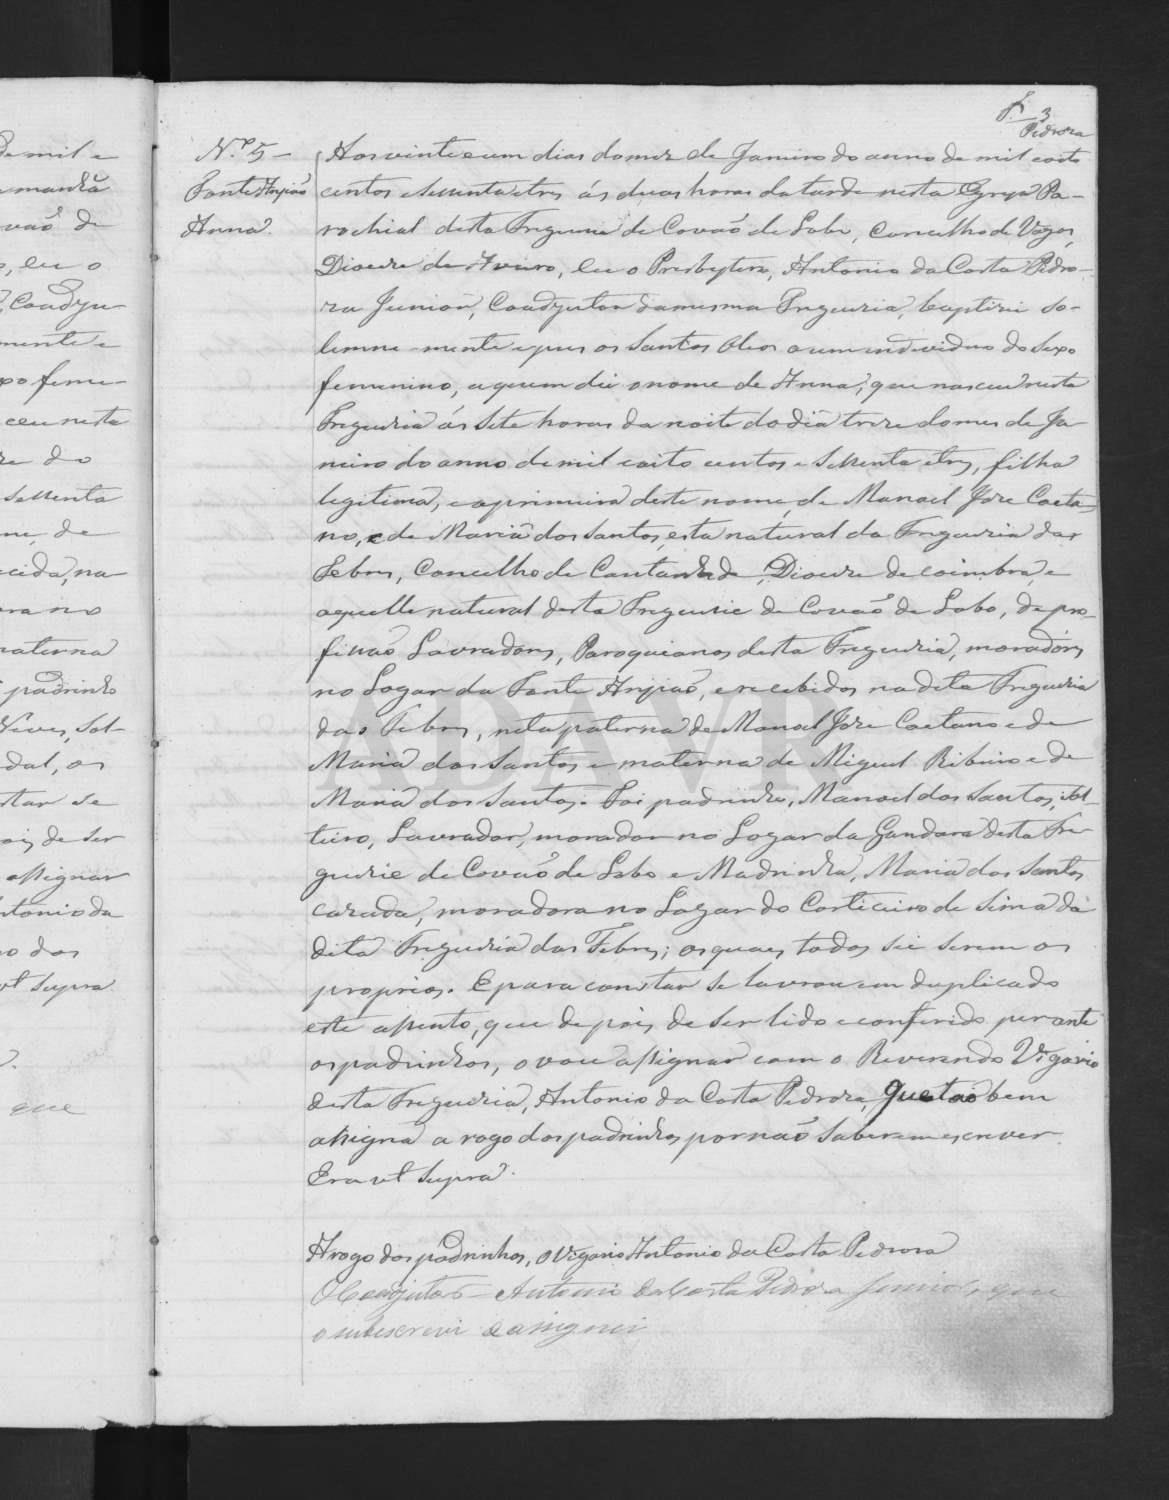 f. 3
Pedroza
N.º 5 –
Fonte Anjião
Anna.
Aos vinte e um dias do mez de Janeiro do anno de mil coito
centos e Settenta e tres ás duas horas da tarde nesta Egreja Pa-
rochial desta Freguezia de Covão de Lobo, Concelho de Vagos,
Diocese de Aveiro, Eu o Presbytero, Antonio da Costa Pedro-
za Junior, Coadjutor da mesma Freguezia, baptizei So-
lemne-mente e puz os Santos Oleos a um individuo do Sexo
femenino, a quem dei o nome de Anna, que nasceu nesta
Freguezia ás Sete horas da noite do dia treze do mez de Ja
neiro do anno de mil coito centos e Settenta e tres, filha
legitima, e a primeira deste nome, de Manoel Joze Caeta
no, e de Maria dos Santos, esta natural da Freguezia das
Febres, Concelho de Cantanhede, Diocese de Coimbra, e
aquelle natural desta Freguezia de Covão de Lobo, de pro-
fissão Lavradores, Paroquianos desta Freguezia, moradores
no Logar da Fonte Anjião, e recebidos na dita Freguezia
das Febres, neta paterna de Manoel Joze Caetano e de
Maria dos Santos e materna de Miguel Ribeiro e de
Maria dos Santos. Foi padrinho, Manoel dos Santos, Sol-
teiro, Lavrador, morador no Logar da Gandara desta Fre
guezia de Covão de Lobo e Madrinha, Maria dos Santos
cazada, moradora no Logar do Corticeiro de Sima da
dita Freguezia das Febres; os quaes todos sei serem os
proprios. E para constar se lavrou em duplicado
este assento, que depois de ser lido e conferido perante
os padrinhos, o vou assignar com o Reverendo Vigario
desta Freguezia, Antonio da Costa Pedroza, que tão bem
assigna a rogo dos padrinhos por não saberem escrever.
Era ut Supra.
A rogo dos padrinhos, o Vigario Antonio da Costa Pedroza
O Coadjutor – Antonio da Costa Pedroza Junior, que
o subscrevi e assignei
de mil e
manhã
vão de
, eu o
, Coadju
mente e
xo feme-
ceu nesta
ze do
Settenta
me de
cida, na
materna
padrinho
Neves, Sol-
dal, os
star se
ois de ser
assignar
ntonio da
o dos
ut Supra
que
ADAVR